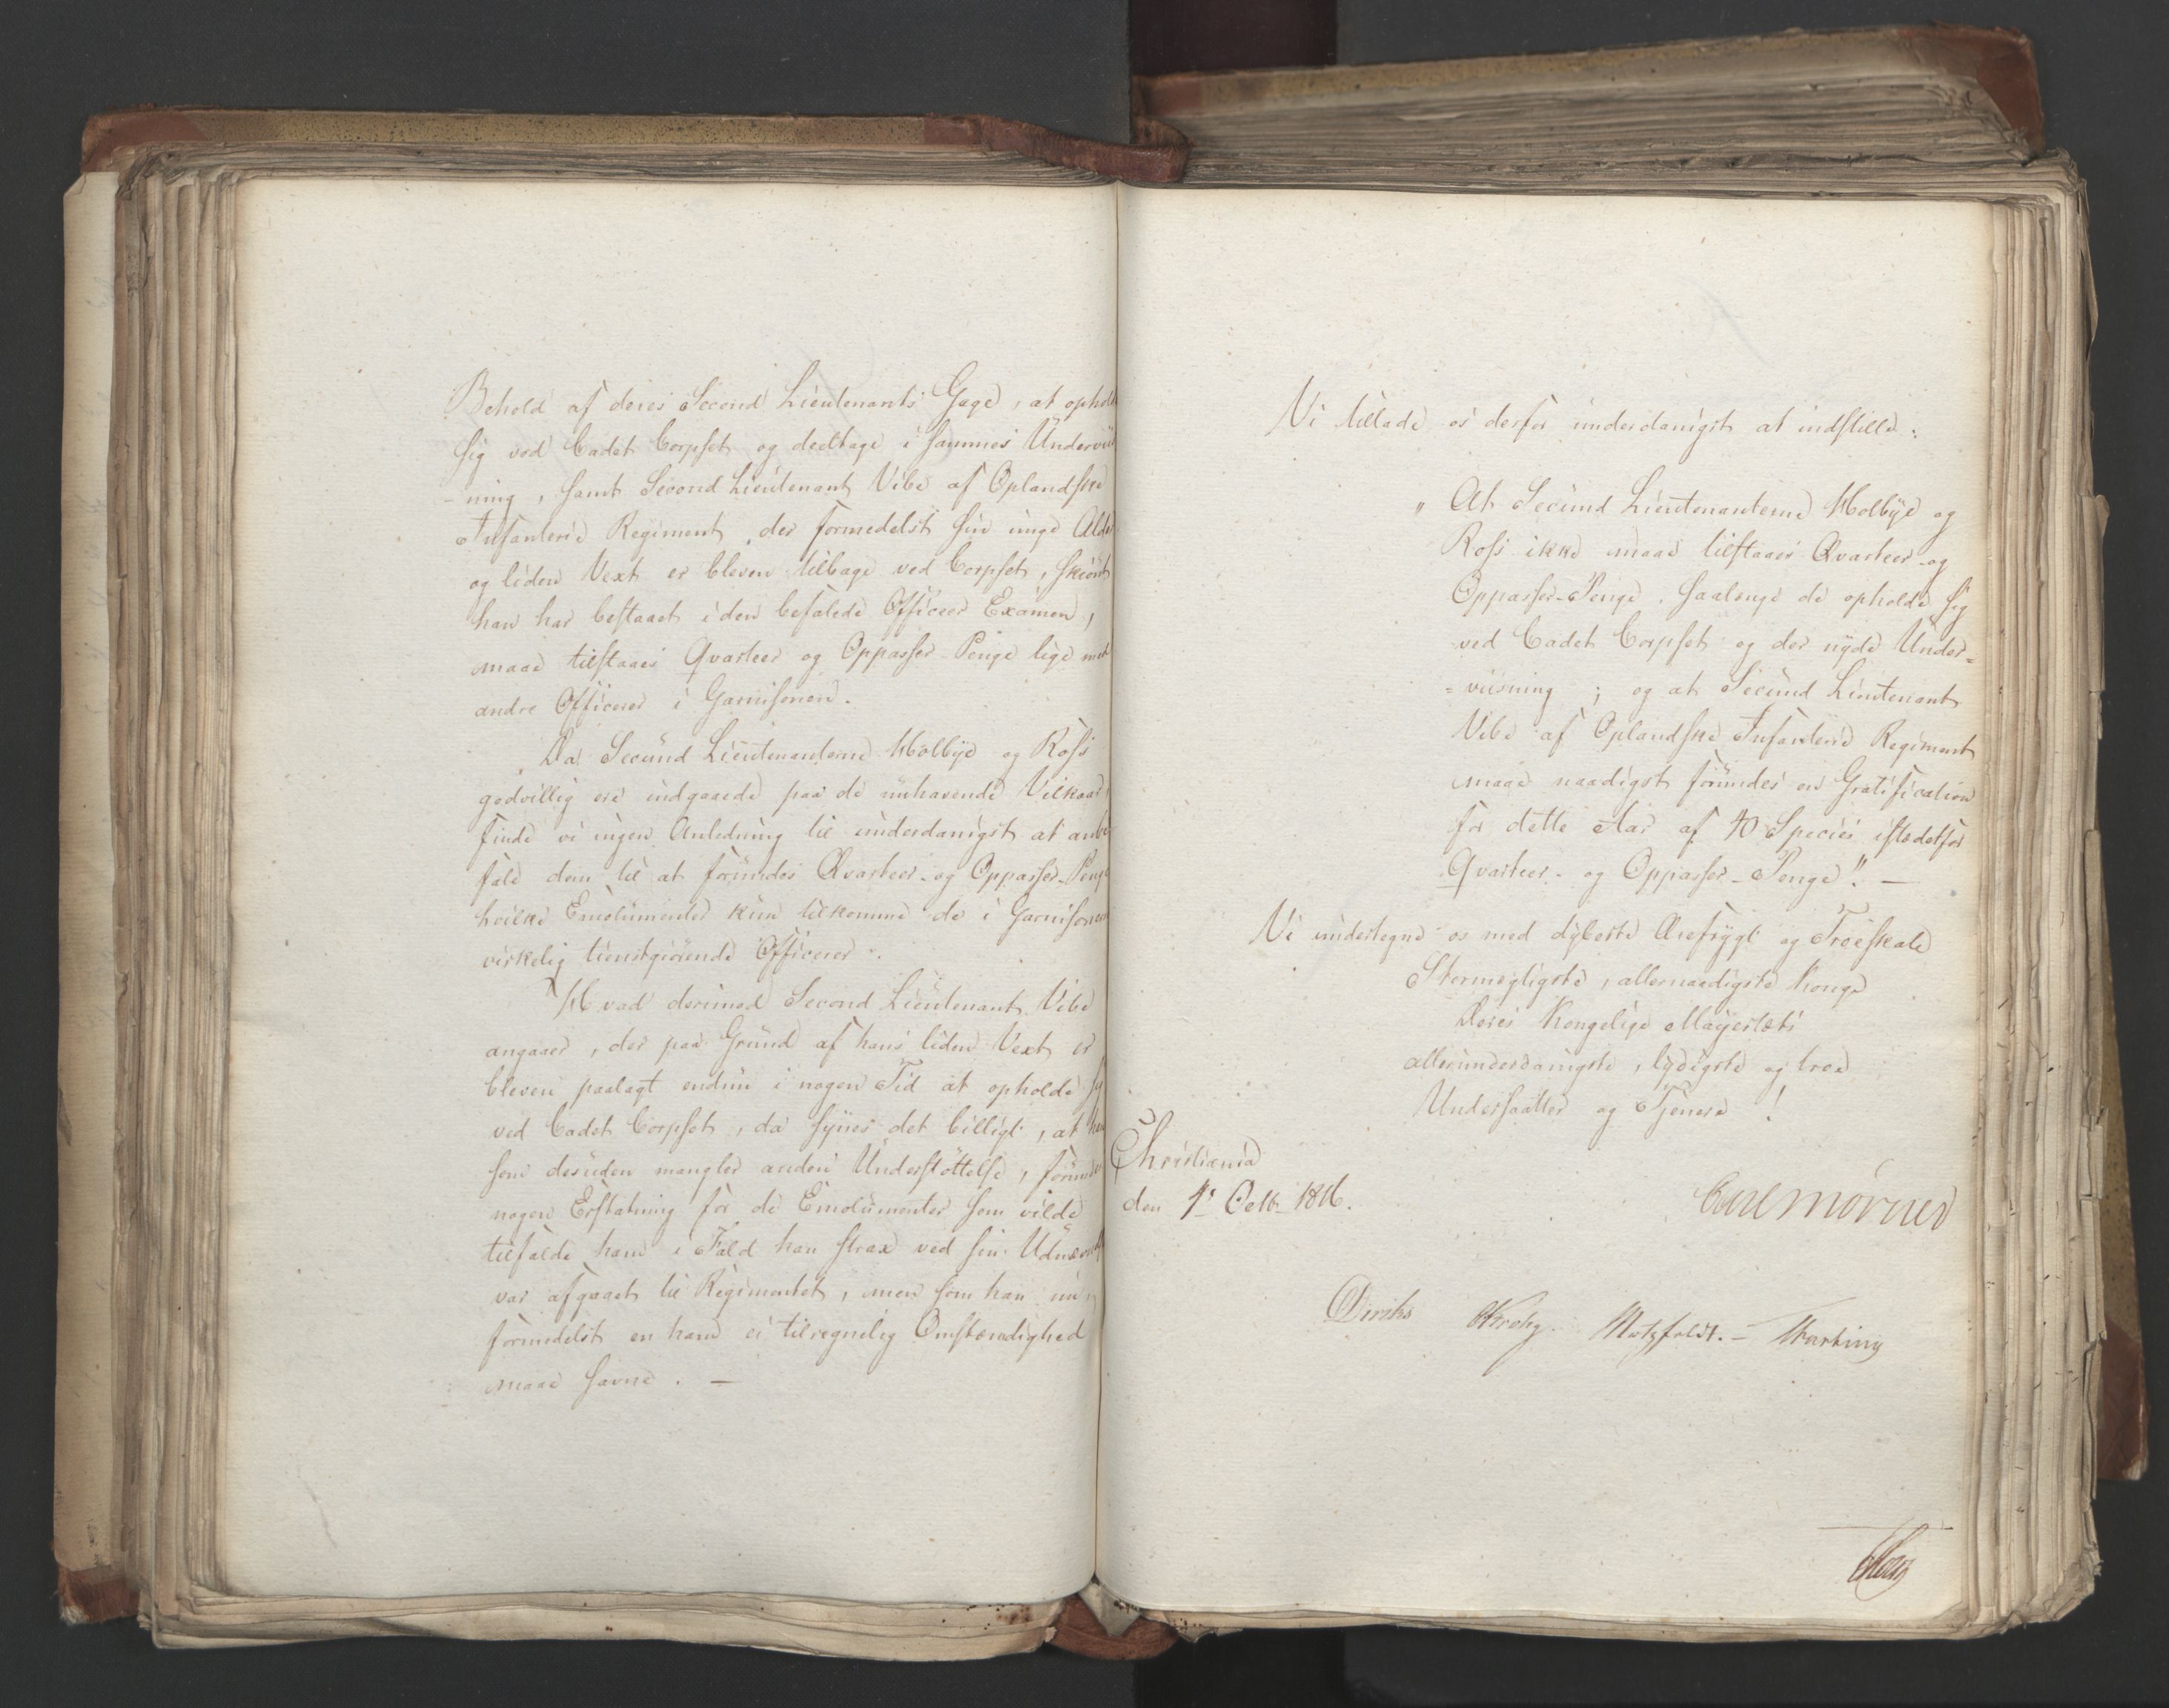 Behold af deres Second Lieutenants Gage, at ophold
sig ved Cadet Corpset og deeltage i sammes Underviis
-ning, samt Second Lieutenant Vibe af Oplandske
Infanterie Regiment, der formedelst sin unge Alder
og liden Vext er bleven tilbage ved Corpset, skiønt
han har bestaaet i den befalede Officeer Examen,
maae tilstaaes Qvarteer og Oppasser-Penge lige med
andre Officerer i Garnisonen.
Da Secund Lieutenanterne Holbye og Ross
godvillig ere indgaaede paa de nuhavende Vilkaar,
finde vi ingen Anledning til underdanigst at anbe
fale dem til at forundes Qvarteer- og Oppasser-Penge
hvilke Emolumenter kun tilkomme de i Garnisonen
virkelig tienstgiørende Officerer.
Hvad derimod Second Lieutenant Vibe
angaaer, der paa Grund af hans liden Vext er
bleven paalagt endnu i nogen Tid at opholde sig
ved Cadet Corpset, da synes det billigt, at han
som desuden mangler anden Understøttelse, forundes
nogen Erstatning for de Emolumenter som vilde
tilfalde ham i Fald han strax ved sin Udnævnelse
var afgaaet til Regimentet, men som han nu,
formedelst en ham ei tilregnelig Omstændighed
maae savne. —
Vi tillade os derfor underdanigst at indstille:
„At Secund Lieutenanterne Holbye og
Ross ikke maae tilstaaes Qvarteer- og
Oppasser-Penge, saalenge de opholde sig
ved Cadet Corpset og der nyde Under=
=viisning; og at Secund Lieutenant
Vibe af Oplandske Infanterie Regiment
maae naadigst forundes en Gratification
for dette Aar af 40 Species istedetfor
Qvarteer- og Oppasser-Penge". —
Vi undertegne os med dybeste Ærefrygt og Troeskab
Stormægtigste, allernaadigste Konge
Deres Kongelige Majestæts
allerunderdanigste, lydigste og troe
Undersaatter og Tjenere!
Christiania
den 1ste Octbr 1816.
Carl Mörner
Diriks Krohg. Motzfeldt. —